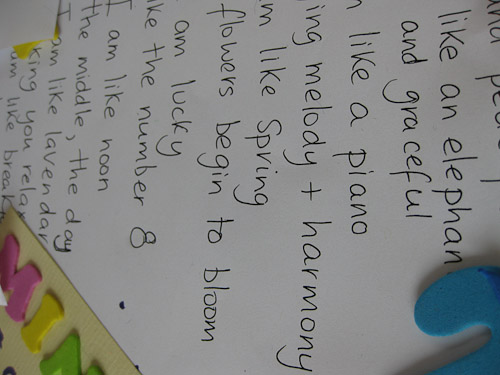 like an elephan
and graceful
m like a piano
ing melody + harmony
m like Spring
flowers begin to bloom
am lucky
ke the number 8
I am like noon
the middle, the day
am like lavendar
king you
am like break